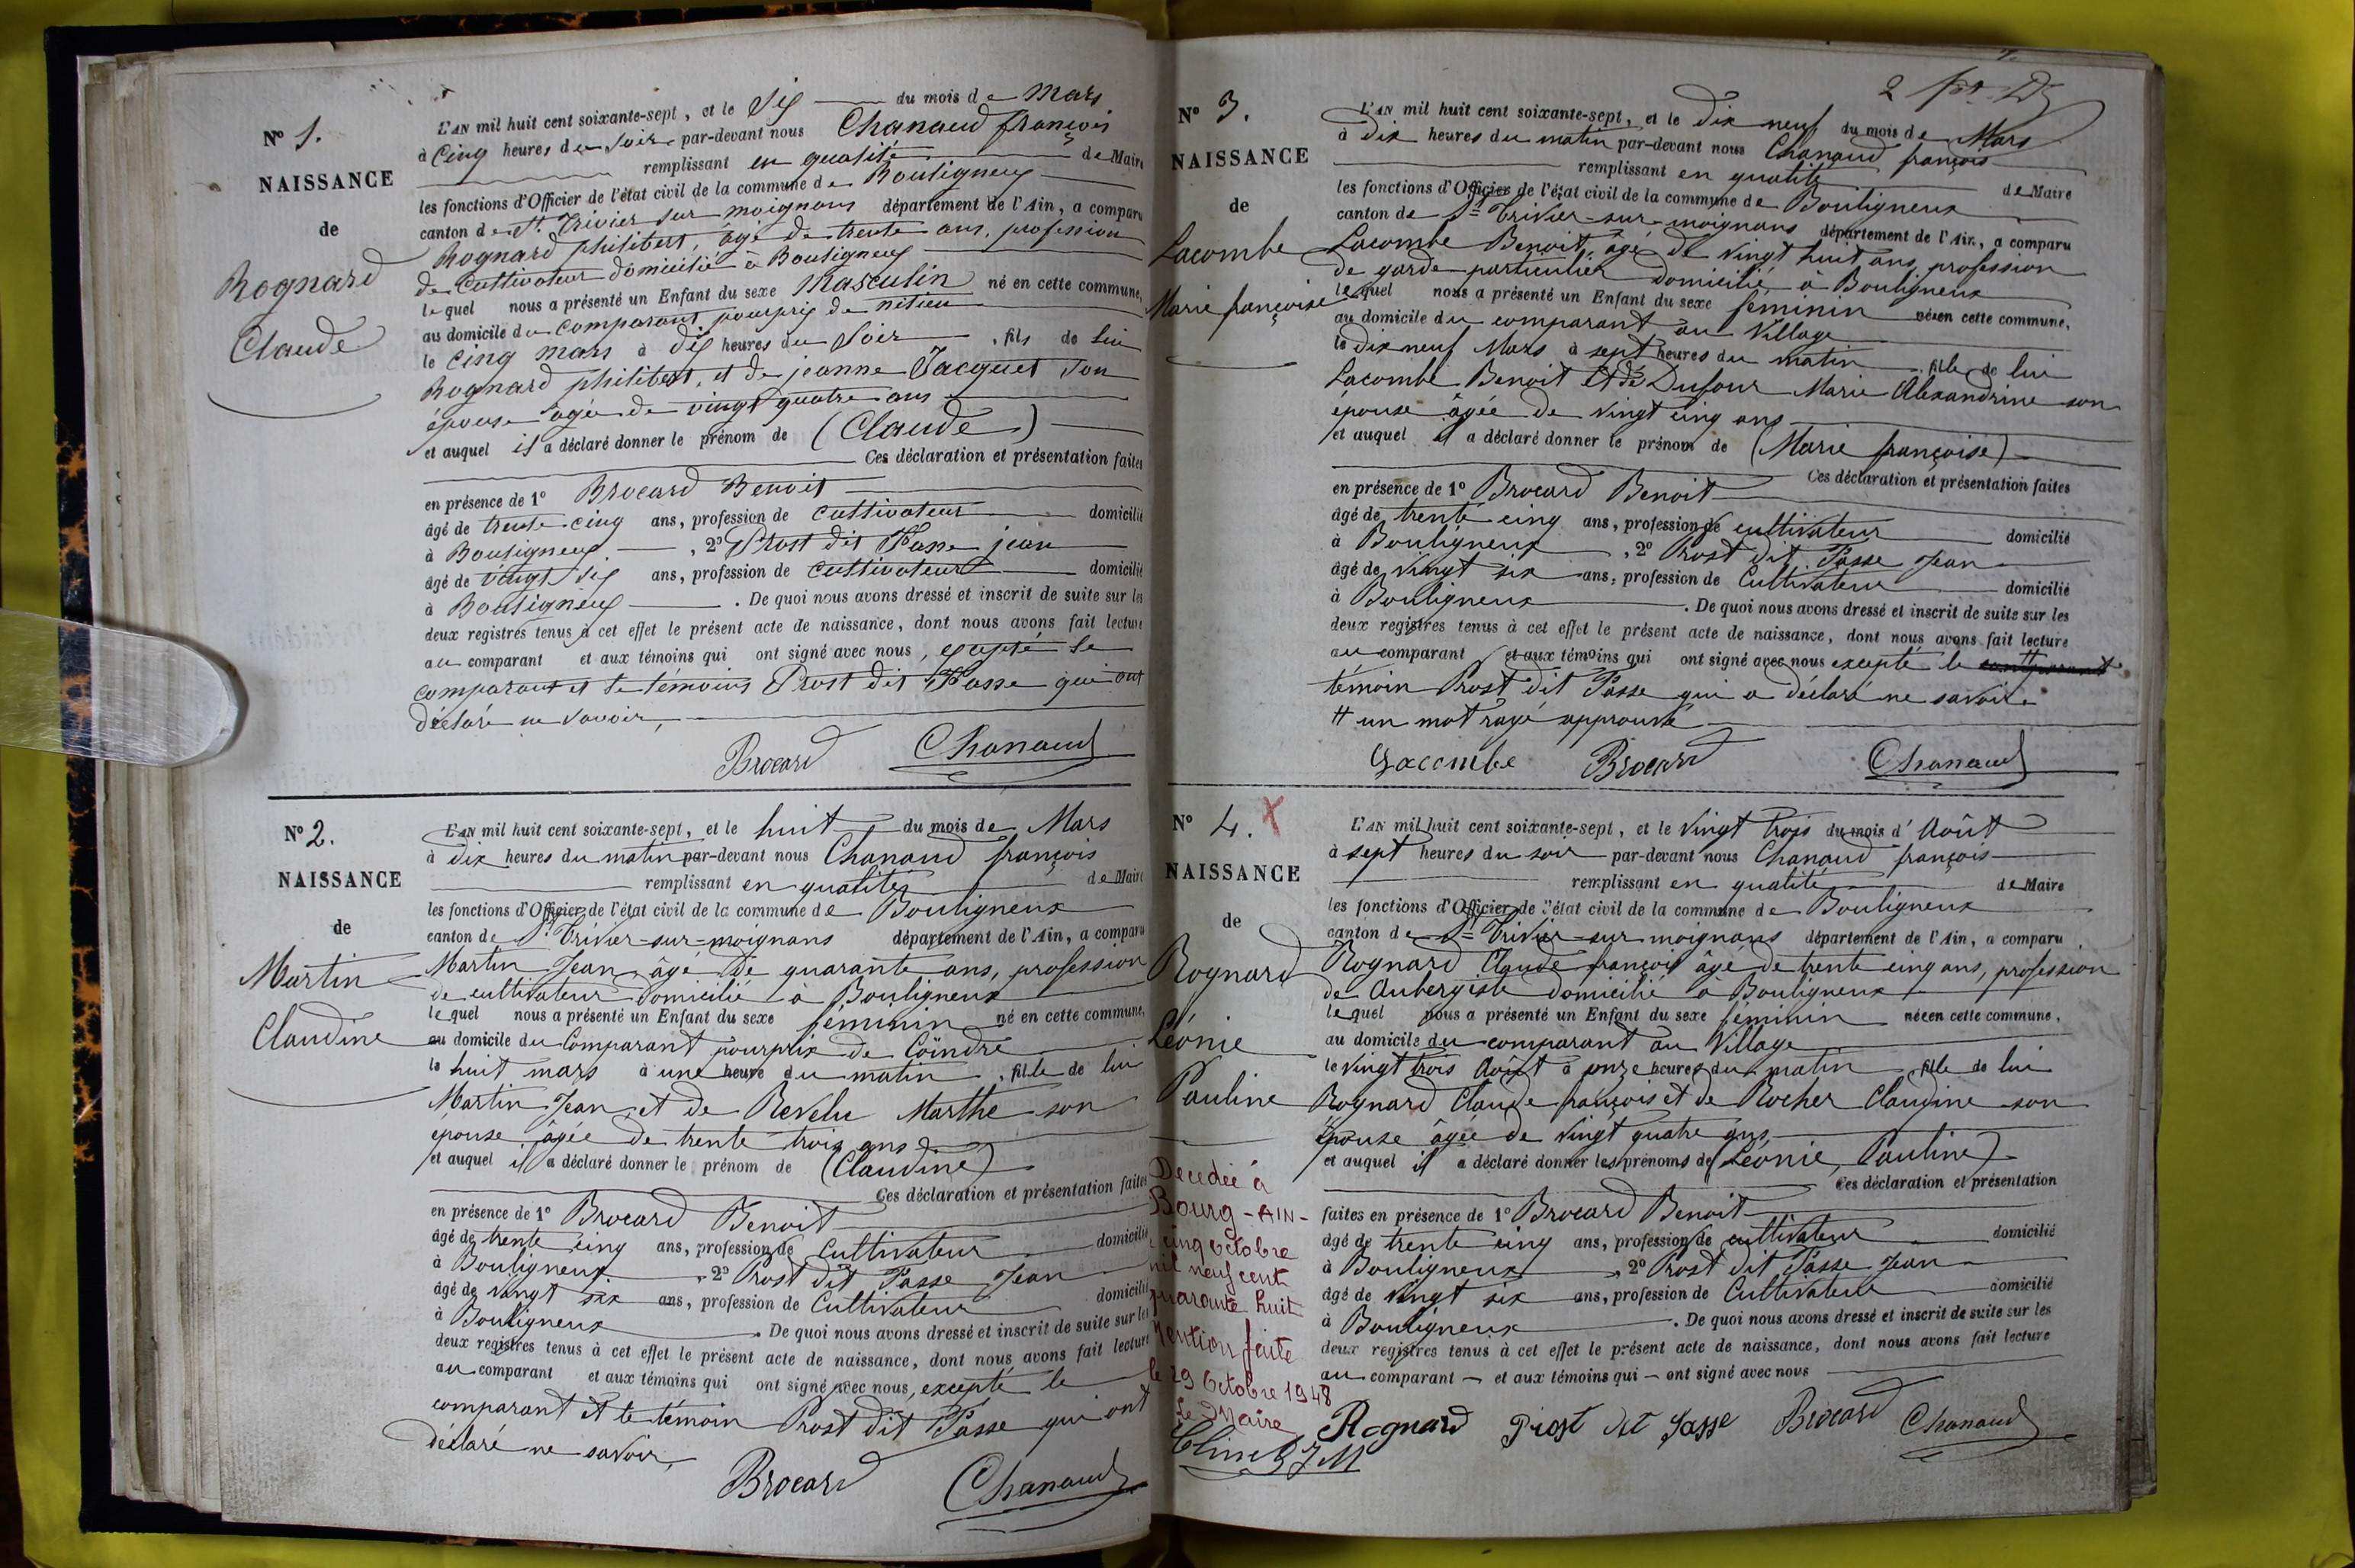 N° 1.
NAISSANCE
de
Rognard
Claude
L'AN mil huit cent soixante-sept, et le Six du mois de Mars
à Cinq heures du Soir par-devant nous Chanaud françois
remplissant en qualité de Maire
les fonctions d'Officier de l'état civil de la commune de Bouligneux
canton de St. Trivier sur moignans département de l'Ain, a comparu
Rognard philibert, âgé de trente ans, profession
de Cultivateur domicilié à Bouligneux
lequel nous a présenté un Enfant du sexe Masculin né en cette commune,
au domicile du comparant, pourpris de
le Cinq mars à dix heures du Soir, fils de lui
Rognard philibert, et de jeanne Jacquet son
épouse agée de vingt quatre ans
et auquel il a déclaré donner le prénom de (Claude)
Ces déclaration et présentation faites
en présence de 1° Brocard Benoit
âgé de trente cinq ans, profession de Cultivateur domicilié
à Bouligneux, 2° Prost dit Passe jean
âgé de vingt six ans, profession de Cultivateur domicilié
à Bouligneux. De quoi nous avons dressé et inscrit de suite sur les
deux registres tenus à cet effet le présent acte de naissance, dont nous avons fait lecture
au comparant et aux témoins qui ont signé avec nous, excepté le
comparant et le témoins Prost dit Passe qui ont
déclaré ne savoir,
Brocard Chanaud
N° 2.
NAISSANCE
de
Martin
Claudine
L'AN mil huit cent soixante-sept, et le huit du mois de Mars
à dix heures du matin par-devant nous Chanaud françois
remplissant en qualité de Maire
les fonctions d'Officier de l'état civil de la commune de Bouligneux
canton de St. Trivier-sur-moignans département de l'Ain, a comparu
Martin Jean, âgé de quarante ans, profession
de cultivateur domicilié à Bouligneux
lequel nous a présenté un Enfant du sexe féminin né en cette commune,
au domicile du Comparant pourprix de Coindre
le huit mars à une heure du matin, fille de lui
Martin Jean et de Revelu Marthe son
épouse, âgée de trente trois ans
et auquel il a déclaré donner le prénom de (Claudine)
Ces déclaration et présentation faites
en présence de 1° Brocard Benoit
âgé de trente cinq ans, profession de Cultivateur domicilié
à Bouligneux. 2° Prost dit Passe Jean
âgé de vingt six ans, profession de Cultivateur domicilié
à Bouligneux. De quoi nous avons dressé et inscrit de suite sur les
deux registres tenus à cet effet le présent acte de naissance, dont nous avons fait lecture
au comparant et aux témoins qui ont signé avec nous, excepté le
comparant et le témoin Prost dit Passe qui ont
déclaré ne savoir,
Brocard Chanaud
2
N° 3.
NAISSANCE
de
Lacombe
Marie françoise
L'AN mil huit cent soixante-sept, et le dix neuf du mois de Mars
à dix heures du matin par-devant nous Chanaud françois
remplissant en qualité de Maire
les fonctions d'Officier de l'état civil de la commune de Bouligneux
canton de St Trivier-sur-moignans département de l'Ain, a comparu
Lacombe Benoit, âgé de vingt huit ans, profession
de garde particulier domicilié à Bouligneux
lequel nous a présenté un Enfant du sexe féminin née en cette commune,
au domicile du comparant, au Village
le dix neuf Mars à sept heures du matin, fille de lui
Lacombe Benoit et de Dufour Marie Alexandrine son
épouse âgée de vingt cinq ans
et auquel il a déclaré donner le prénom de (Marie françoise)
Ces déclaration et présentation faites
en présence de 1° Brocard Benoit
âgé de trente cinq ans, profession de cultivateur domicilié
à Bouligneux, 2° Prost dit Passe Jean
âgé de vingt six ans, profession de Cultivateur domicilié
à Bouligneux. De quoi nous avons dressé et inscrit de suite sur les
deux registres tenus à cet effet le présent acte de naissance, dont nous avons fait lecture
au comparant et aux témoins qui ont signé avec nous excepté le comparant
témoin Prost dit Passe qui a déclaré ne savoir.
# un mot rayé approuvé
Lacombe Brocard Chanaud
N° 4. X
NAISSANCE
de
Rognard
Léonie
Pauline
Decedée à
Bourg - AIN -
cinq octobre
mil neuf cent
quarante huit
Mention faite
le 29 Octobre 1948
Le Maire
L'AN mil huit cent soixante-sept, et le vingt trois du mois d'Août
à sept heures du soir par-devant nous Chanaud françois
remplissant en qualité de Maire
les fonctions d'Officier de l'état civil de la commune de Bouligneux
canton de St Trivier-sur moignans département de l'Ain, a comparu
Rognard Claude françois âgé de trente cinq ans, profession
de Aubergiste domicilié à Bouligneux
lequel nous a présenté un Enfant du sexe féminin née en cette commune,
au domicile du comparant au Village
le vingt trois Août à onze heures du matin, fille de lui
Rognard Claude françois et de Rocher Claudine son
épouse âgée de vingt quatre ans
et auquel il a déclaré donner les prénoms de (Léonie, Pauline)
Ces déclaration et présentation
faites en présence de 1° Brocard Benoit
âgé de trente cinq ans, profession de cultivateur domicilié
à Bouligneux, 2° Prost dit Passe Jean
âgé de vingt six ans, profession de Cultivateur domicilié
à Bouligneux. De quoi nous avons dressé et inscrit de suite sur les
deux registres tenus à cet effet le présent acte de naissance, dont nous avons fait lecture
au comparant - et aux témoins qui - ont signé avec nous
Rognard Prost dit Passe Brocard Chanaud